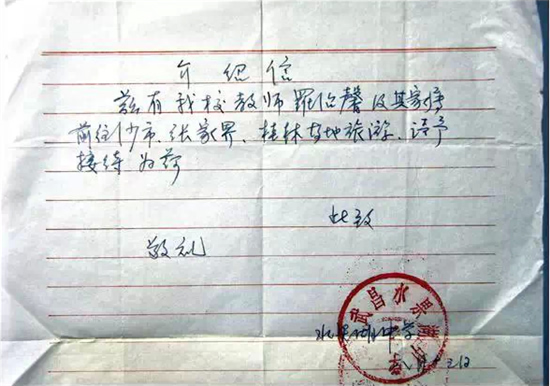 介绍信
兹有我校教师罗伯馨及其家停
前往沙市、张家界、桂林等地旅游、请予
接待为荷
此致
敬礼
水果湖中学
武昌水果湖